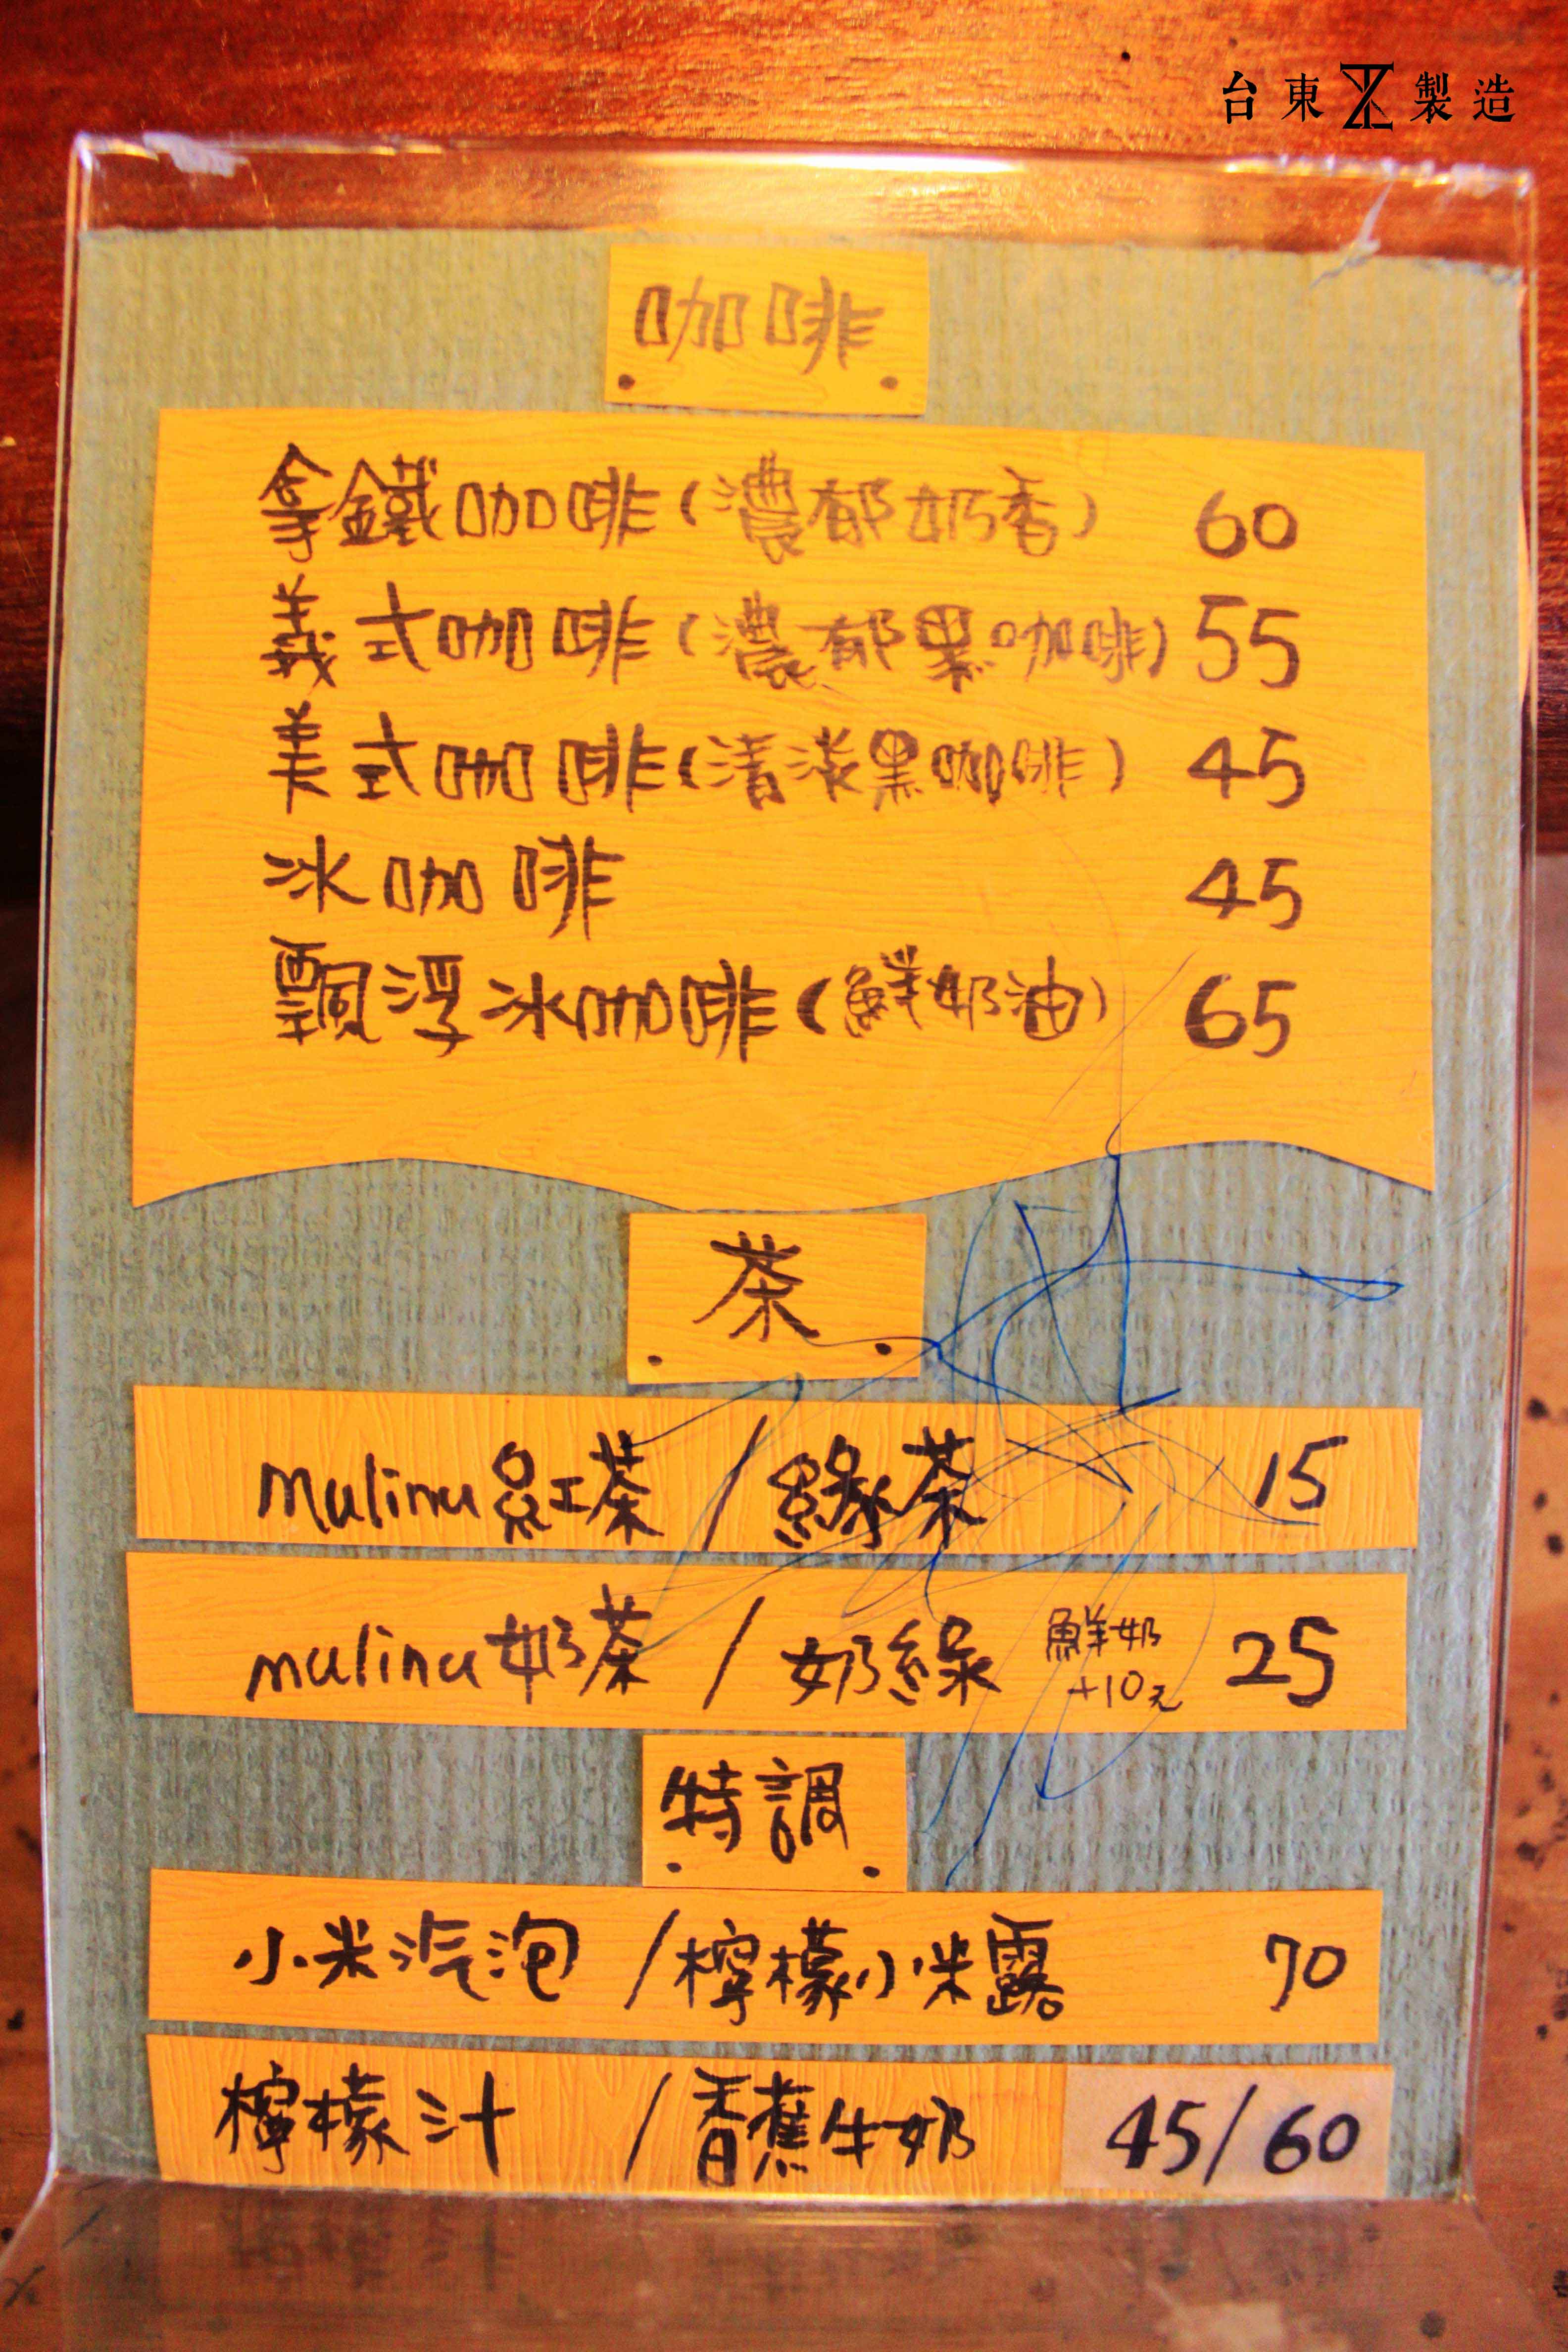 台東製造
咖啡
拿鐵咖啡(濃郁奶香) 60
義式咖啡(濃郁黑咖啡) 55
美式咖啡(清淡黑咖啡) 45
冰咖啡 45
飄浮冰咖啡(鮮奶油) 65
茶
malina紅茶 / 綠茶 15
malina奶茶 / 奶綠 鮮奶+10元 25
特調
小米汽泡 / 檸檬小米露 70
檸檬汁 / 香蕉牛奶 45/60